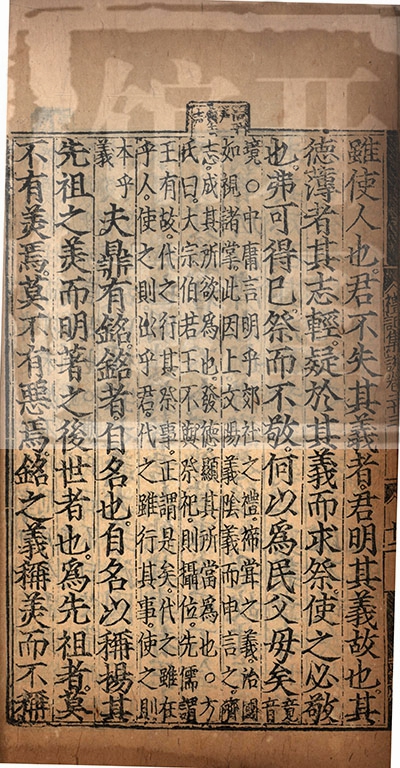 雖使人也。君不失其義者。君明其義故也。其
德薄者。其志輕。疑於其義而求祭。使之必敬
也。弗可得已。祭而不敬。何以爲民父母矣竟音
境。○中庸言明乎郊社之禮。禘嘗之義。治國
如視諸掌。此因上文陽義陰義而申言之。濟
志。成其所欲爲也。發德。顯其所當爲也。○方
氏曰。大宗伯若王不與祭祀。則攝位。先儒謂
王有故。代之行其祭事。正謂是矣。代之雖在
乎人。使之則出乎君。代之雖行其事。使之則
本乎義
夫鼎有銘。銘者自名也。自名以稱揚其
先祖之美。而明著之後世者也。爲先祖者。莫
不有美焉。莫不有惡焉。銘之義。稱美而不稱